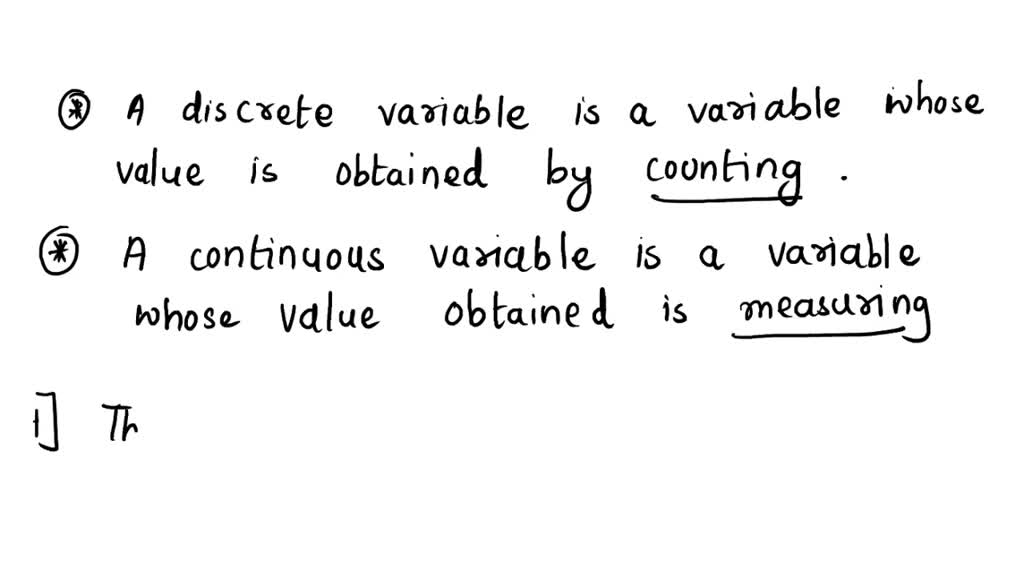 ⊛ A discrete variable is a variable whose
value is obtained by counting .
⊛ A continuous variable is a variable
whose value obtained is measuring
1] Th